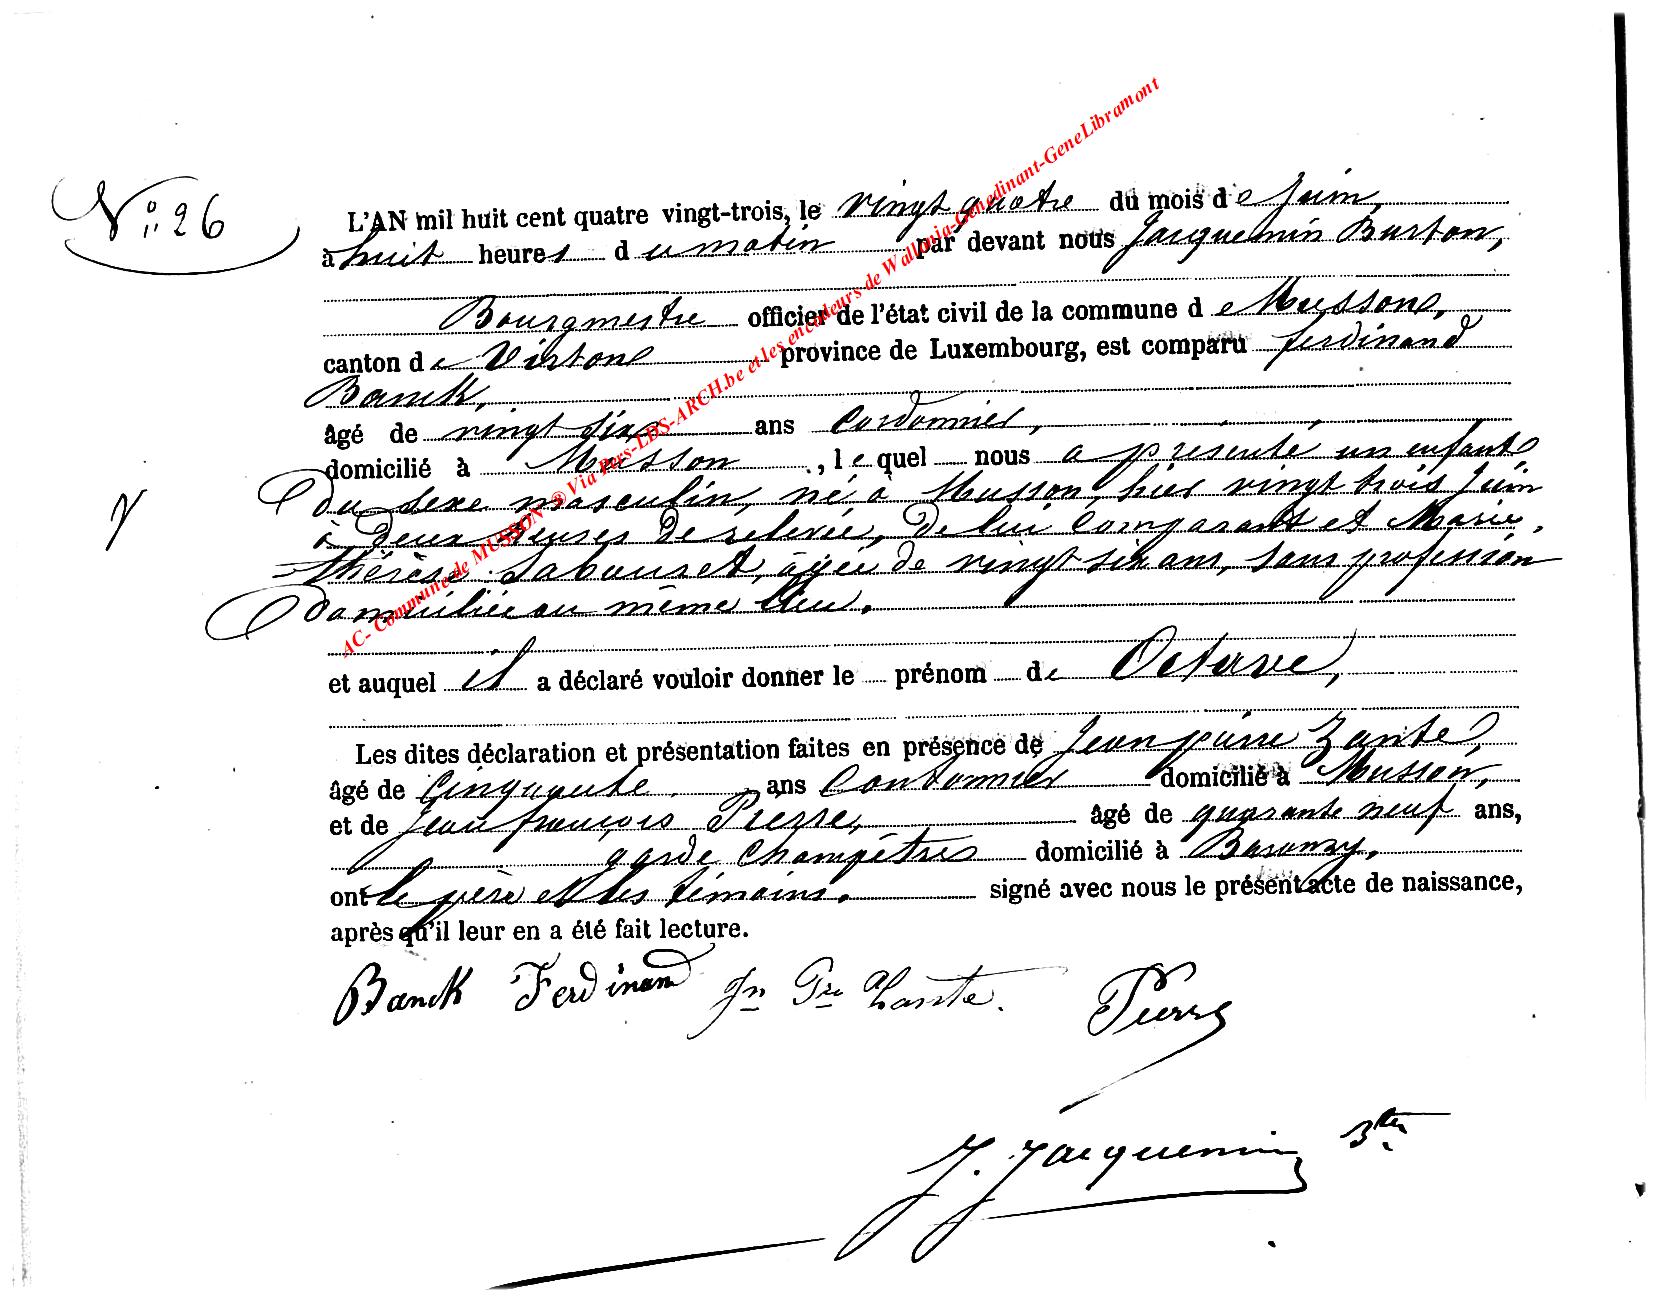 N° 26
L'AN mil huit cent quatre vingt-trois, le vingt quatre du mois de Juin,
à huit heures du matin par devant nous Jacquemin Burton,
Bourgmestre officier de l'état civil de la commune de Musson,
canton de Virton province de Luxembourg, est comparu ferdinand
Banck,
âgé de vingt six ans Cordonnier,
domicilié à Musson, lequel nous a présenté un enfant
du sexe masculin, né à Musson, hier vingt trois Juin
à deux heures de relevée, de lui Comparant et Marie,
thérèse Sabouret, âgée de vingt six ans, sans profession
domiciliée au même lieu.
et auquel il a déclaré vouloir donner le prénom de Octave,
Les dites déclaration et présentation faites en présence de Jean pierre Zante,
âgé de Cinquante ans Cantonnier domicilié à Musson,
et de Jean françois Pierre, âgé de quarante neuf ans,
garde Champêtre domicilié à Baranzy,
ont le père et les témoins, signé avec nous le présent acte de naissance,
après qu'il leur en a été fait lecture.
Banck Ferdinand Jn Pre Pierre
J. Jacquemin
AC- Commune de MUSSON ® Via Pers-LDS-ARCH.be et les encodeurs de Wallonia-Genedinant-GeneLibramont